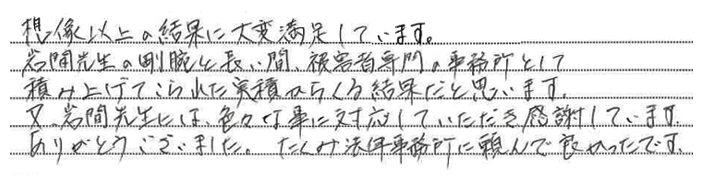 想像以上の結果に大変満足しています。
岩間先生の剛腕と長い間、被害者専門の事務所として
積み上げてこられた実積からくる結果だと思います。
又、岩間先生には、色々な事に対応していただき感謝しています。
ありがとうございました。たくみ法律事務所に頼んで良かったです。